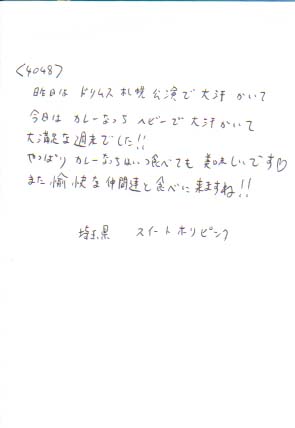 〈4048〉
昨日は ドリムス 札幌 公演で 大汗 かいて
今日は カレーなっち ヘビーで 大汗 かいて
大満足な 週末でした!!
やっぱり カレーなっちはいつ食べても 美味しいです♡
また 愉快な 仲間達と 食べに 来ますね!!
埼玉県 スイートホリピンク